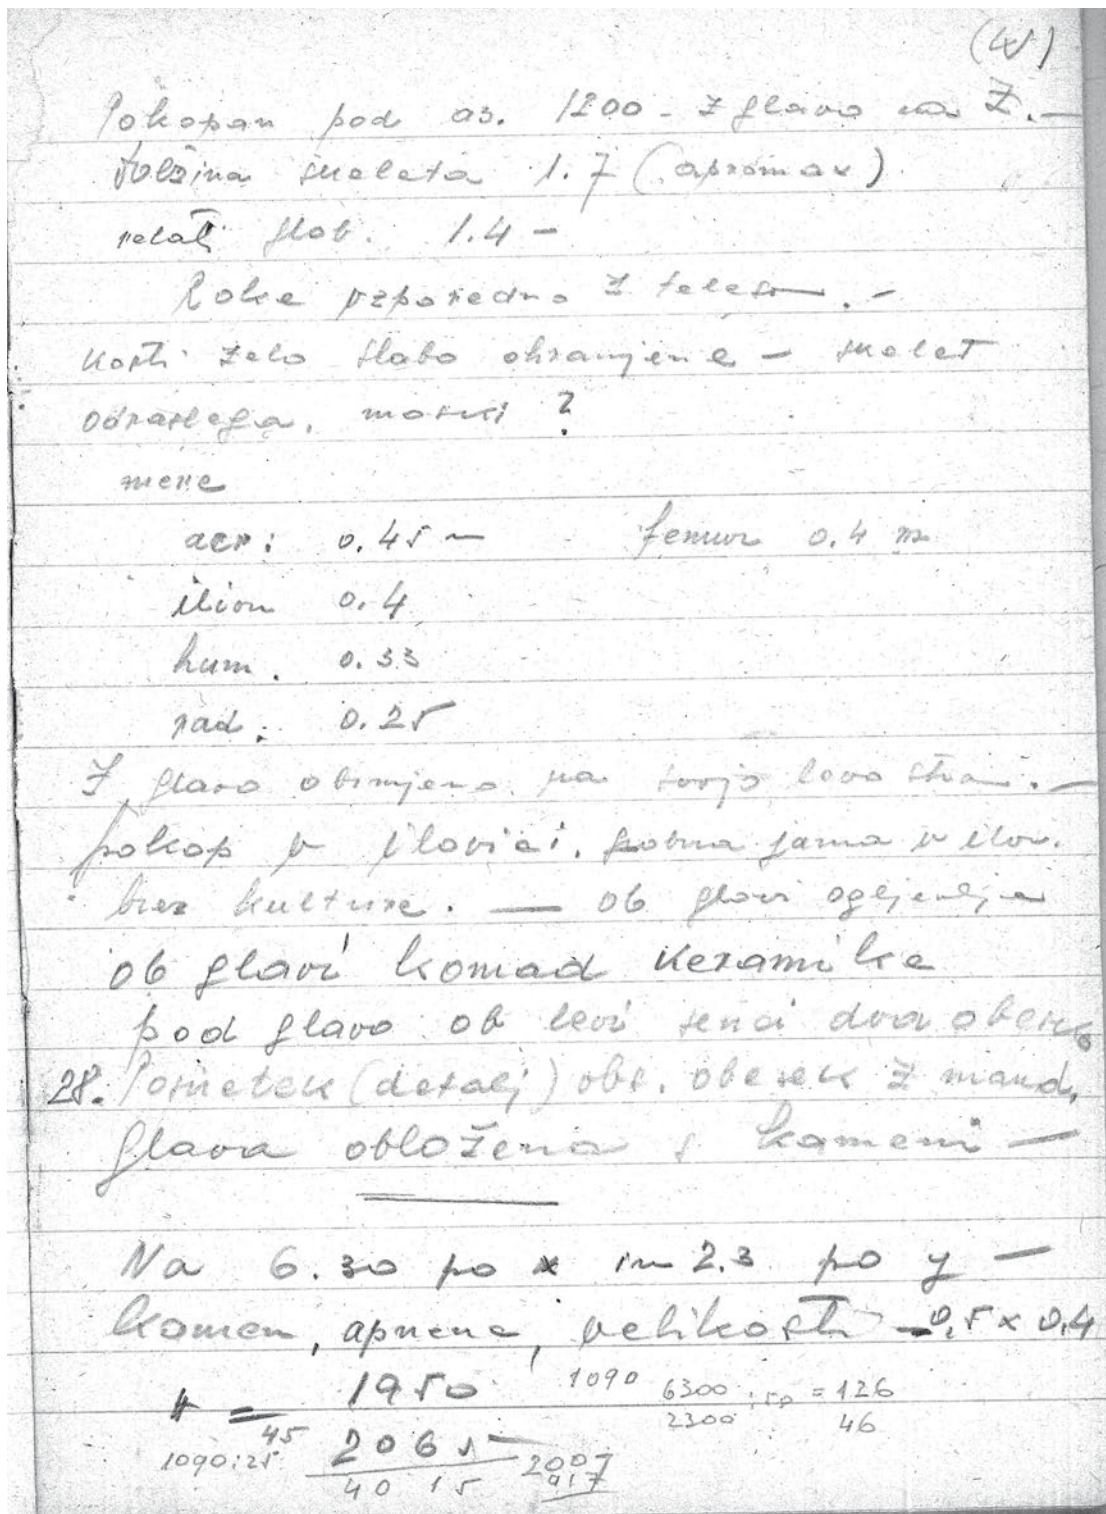 Pokopan pod as. 1200 - z glavo na Z. -
Dolžina skeleta 1.7 (apromax)
relat. glob. 1.4 -
Roke vzporedno z telesom. -
Kosti zelo slabo ohranjene - skelet
odraslega. moški ?
mere
acr: 0.45 femur 0.4 m
ilion 0.4
hum. 0.33
rad: 0.25
Z glavo obrnjeno na svojo levo stran. -
pokop v ilovici. grobna jama v ilov.
brez kulture. — ob glavi ogljenje
ob glavi komad keramike
pod glavo ob levi senci dva obeska
28. Posnetek (detalj) obs. obesek z mand.
glava obložena s kameni —
Na 6.30 po x in 2.3 po y —
kamen, apnene, velikosti - 0,5 x 0,4
= 1950 1090 6300 : 50 = 126
45 2065 2300 46
1090:25 40 15 2007
917